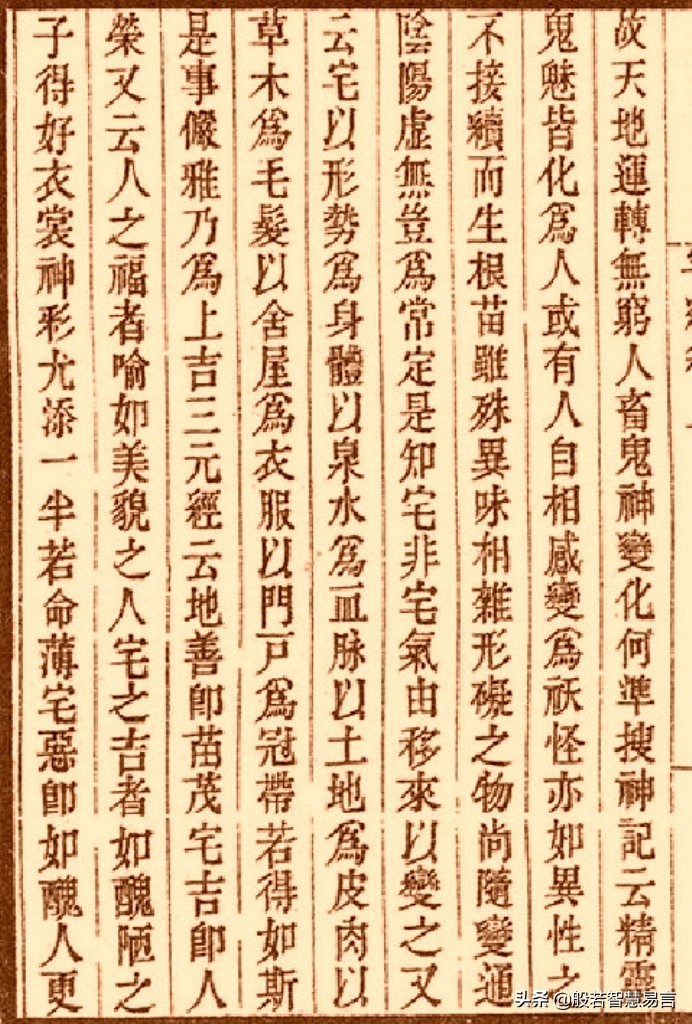 故天地運轉無窮人畜鬼神變化何準搜神記云精靈
鬼魅皆化爲人或有人自相感變爲祅怪亦如異性之
不接續而生根苗雖殊異味相雜形礙之物尚隨變通
陰陽虛無豈爲常定是知宅非宅氣由移來以變之又
云宅以形勢爲身體以泉水爲血脉以土地爲皮肉以
草木爲毛髮以舍屋爲衣服以門戸爲冠帶若得如斯
是事儼雅乃爲上吉三元經云地善卽苗茂宅吉卽人
榮又云人之福者喻如美貌之人宅之吉者如醜陋之
子得好衣裳神彩尤添一半若命薄宅惡卽如醜人更
头条 @般若智慧易言